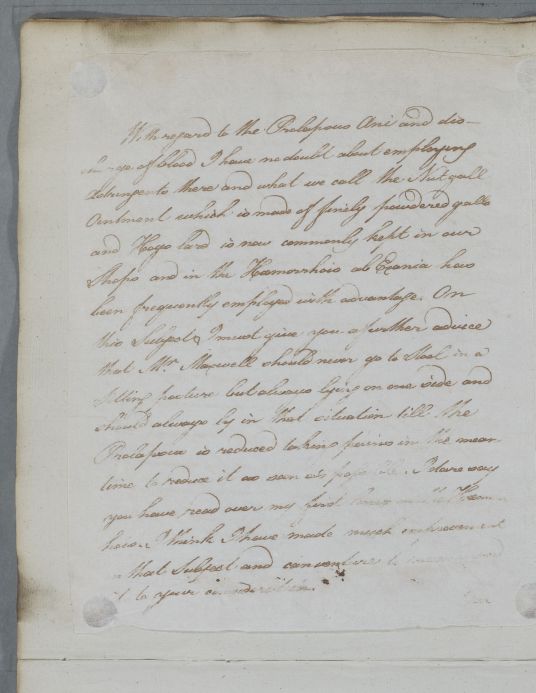 With regard to the Prolapsus Ani and dis-
charge of blood I have no doubt about employing
Astringents there and what we call the Nut gall
Ointment which is made of finely powdered galls
and Hogs lard is now commonly kept in our
Shops and in the Hæmorrhois ab Exania has
been frequently employed with advantage. On
this Subject I must give you a further advice
that Mr. Maxwell should never go to Stool in a
sitting posture but always lying on one side and
should always ly in that situation till the
Prolapsus is reduced taking pains in the mean
time to reduce it as soon as possible. I dare say
you have read over my first
I think I have made much improvement
on that Subject and can venture to
it to your consideration.